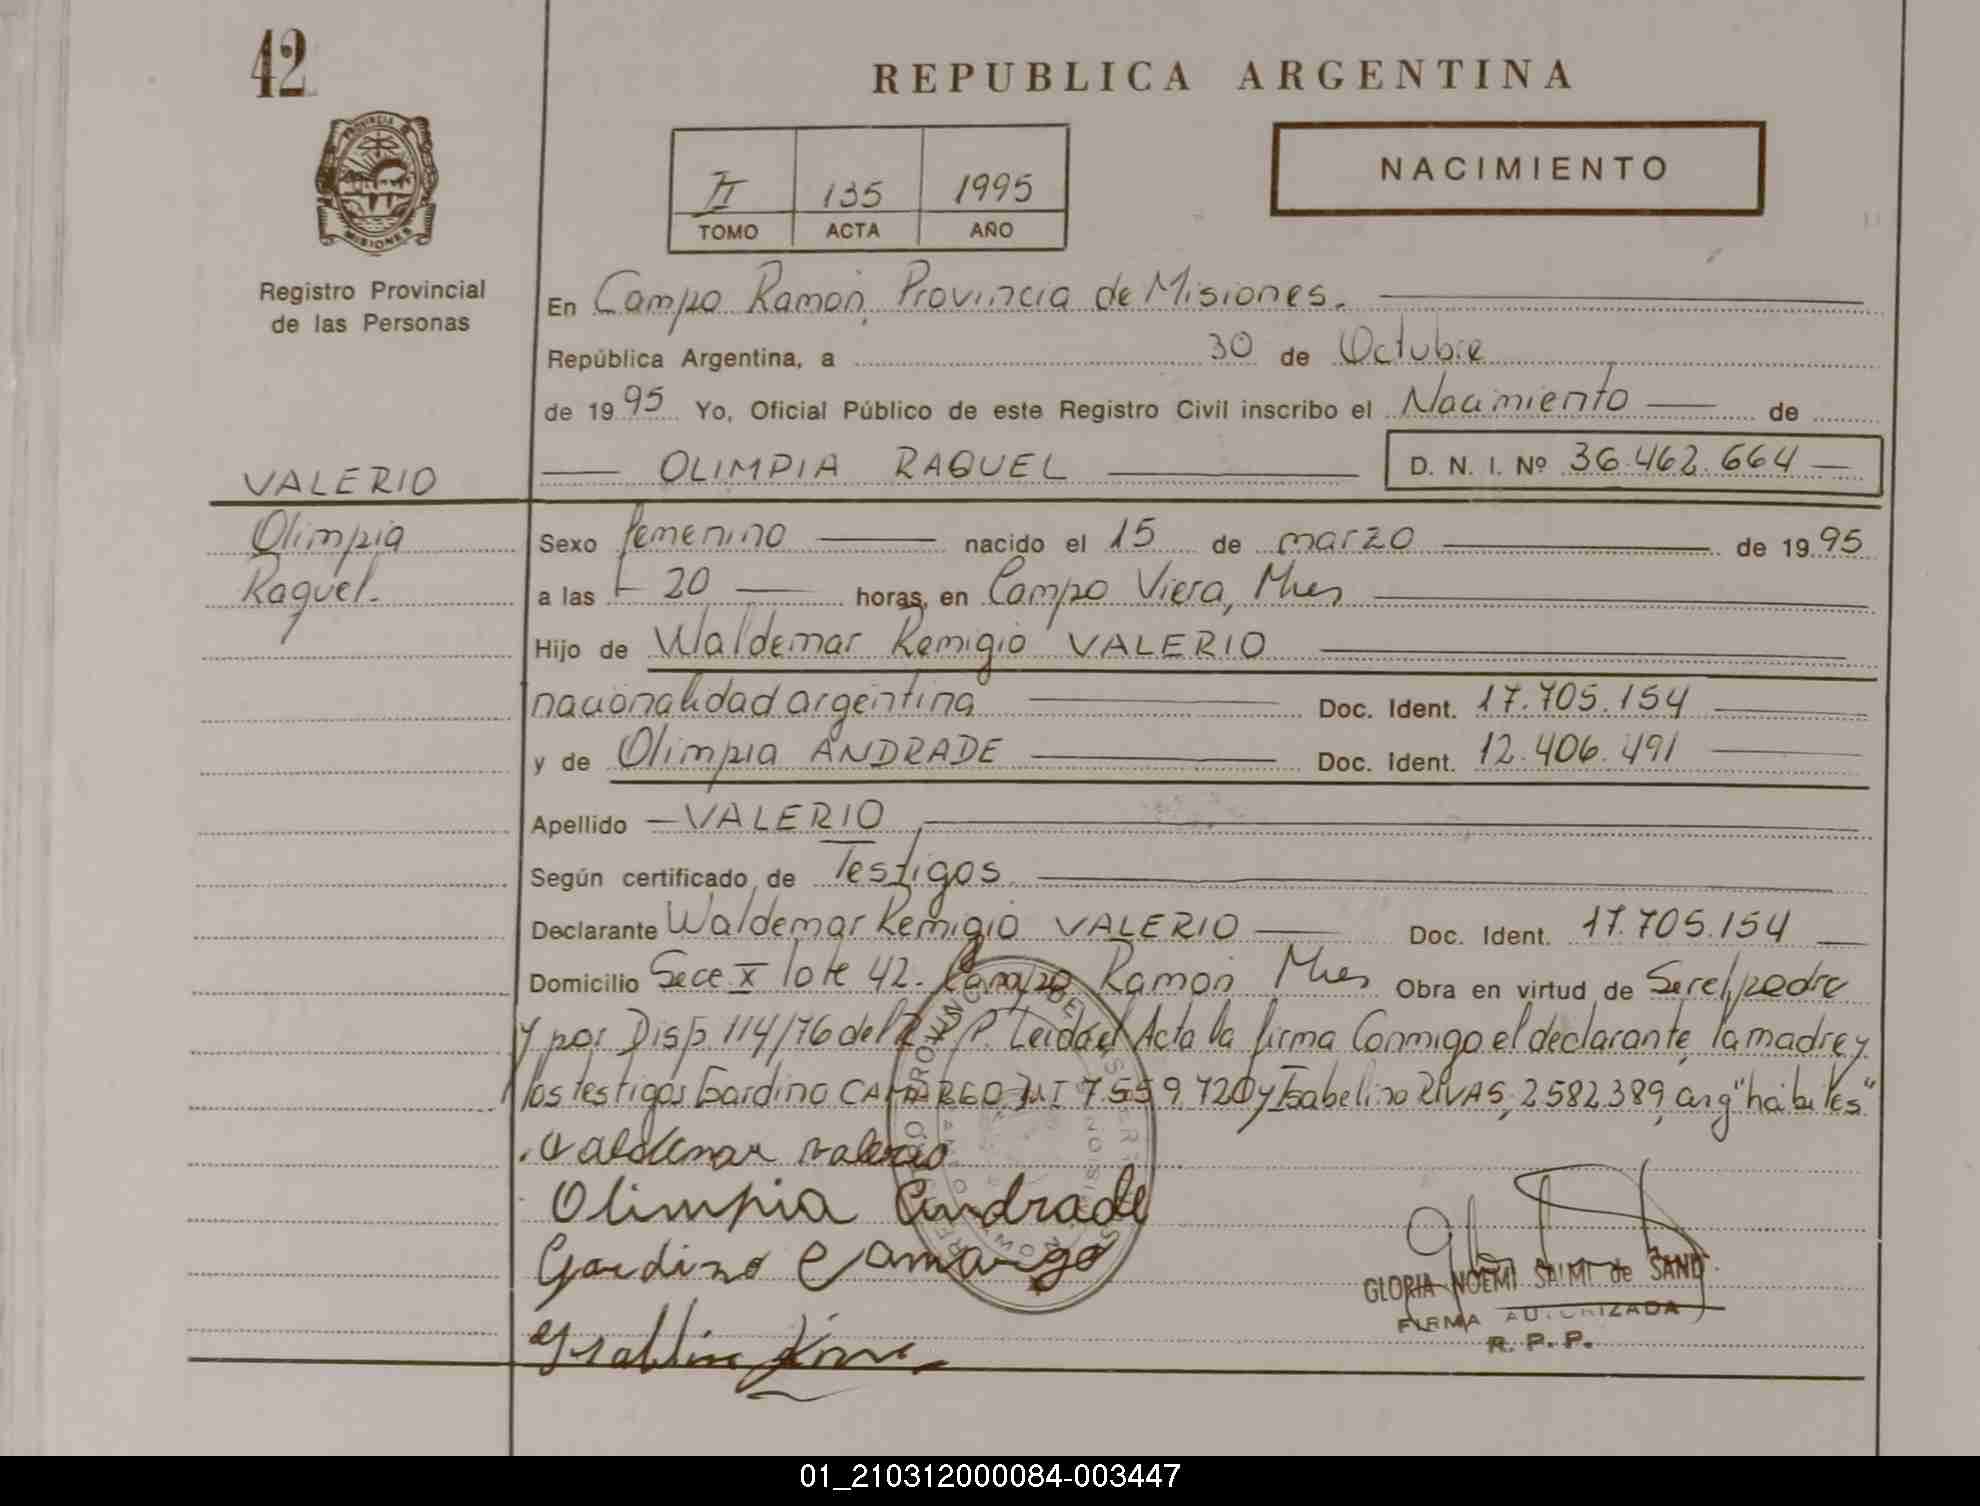 42
REPUBLICA ARGENTINA
PROVINCIA
MISIONES
Registro Provincial
de las Personas
II 135 1995
TOMO ACTA AÑO
NACIMIENTO
En Campo Ramón, Provincia de Misiones.
República Argentina, a 30 de Octubre
de 1995 Yo, Oficial Público de este Registro Civil inscribo el Nacimiento de
VALERIO OLIMPIA RAQUEL D. N. I. Nº 36.462.664
Olimpia
Raquel.
Sexo femenino nacido el 15 de marzo de 1995
a las 20 horas, en Campo Viera, Mnes
Hijo de Waldemar Remigio VALERIO
nacionalidad argentina Doc. Ident. 17.705.154
y de Olimpia ANDRADE Doc. Ident. 12.406.491
Apellido VALERIO
Según certificado de Testigos
Declarante Waldemar Remigio VALERIO Doc. Ident. 17.705.154
Domicilio Secc X lote 42. Campo Ramón Mnes Obra en virtud de Ser el padre
y por Disp. 114/76 del R.P.P. Leida el Acta la firma Conmigo el declarante, la madre y
los testigos Gardino CAMARGO MI 7.559.720 y Isabelino RIVAS, 2582.389, arg "hábiles"
Valdemar Valerio
Olimpia Andrade
Gardino Camargo
GLORIA NOEMI SAIMI de SAND
FIRMA AUTORIZADA
R. P. P.
01_210312000084-003447